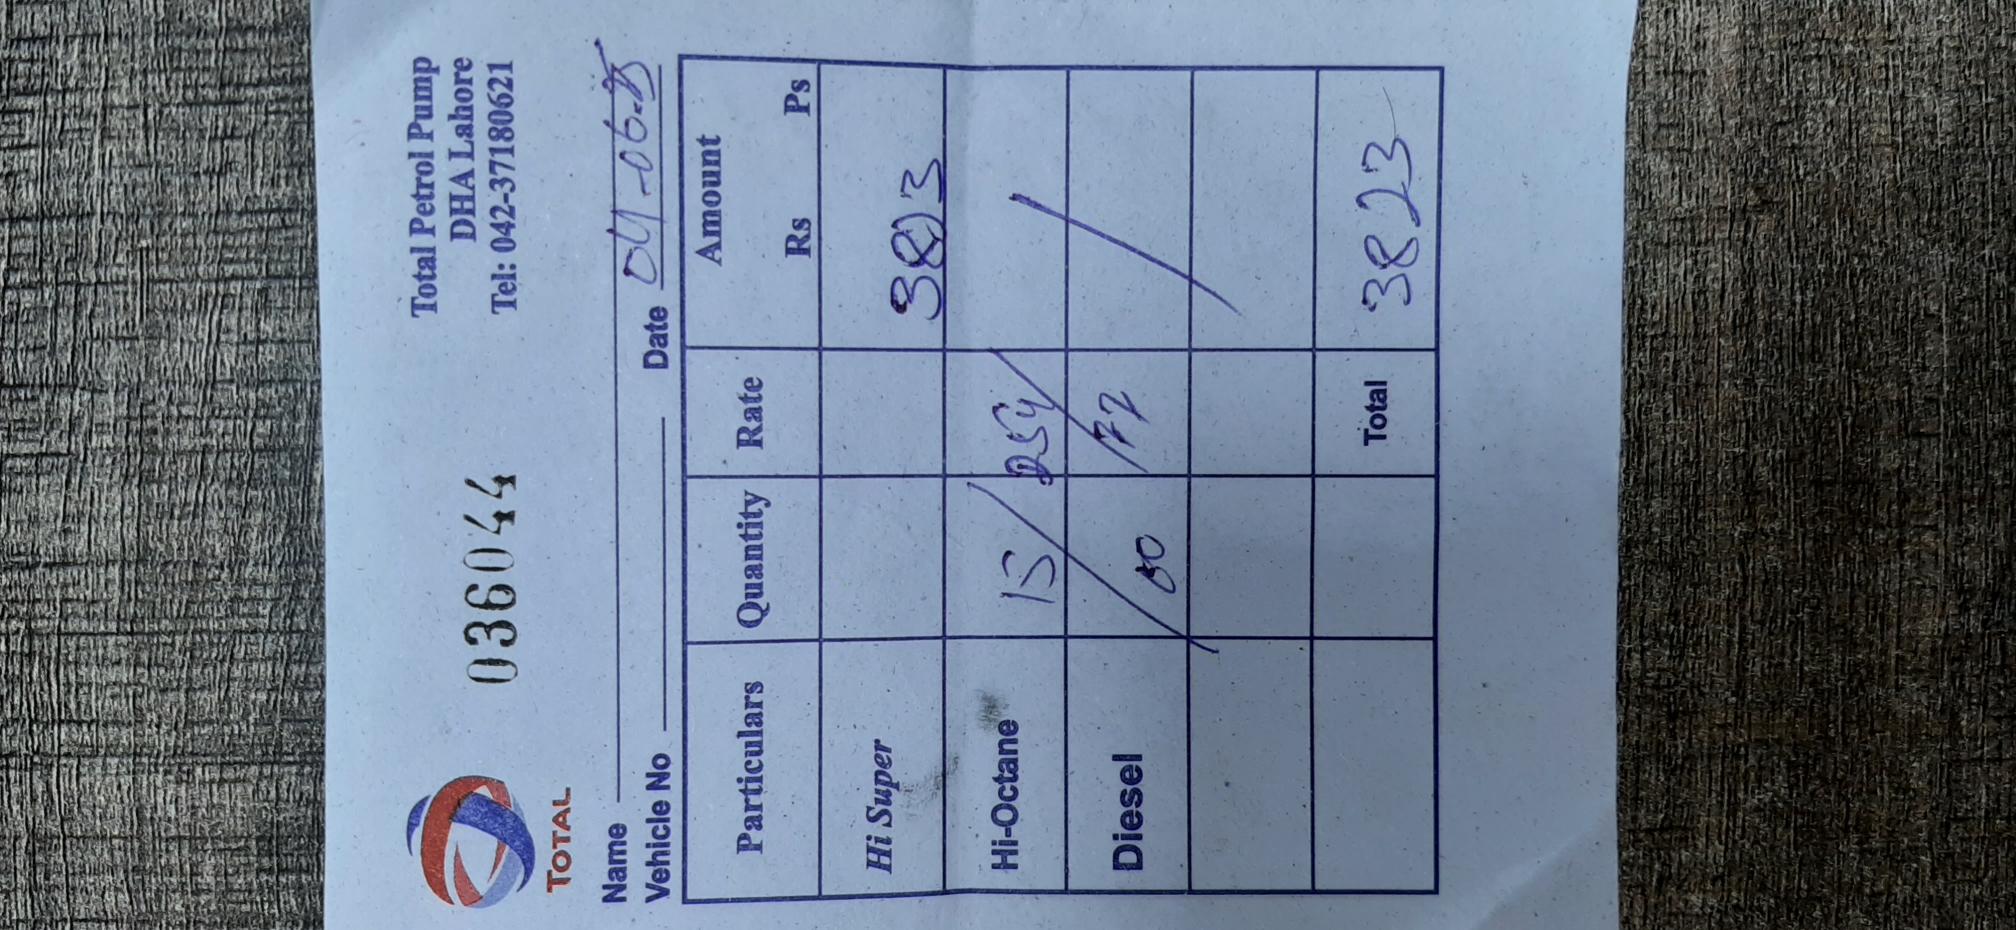 Total Petrol Pump
DHA Lahore
Tel: 042-37180621
036044
TOTAL
Name
Vehicle No Date 04-06-25
Particulars Quantity Rate Amount
Rs Ps
Hi Super 3823
Hi-Octane 15 254
Diesel 00 77
Total 3823